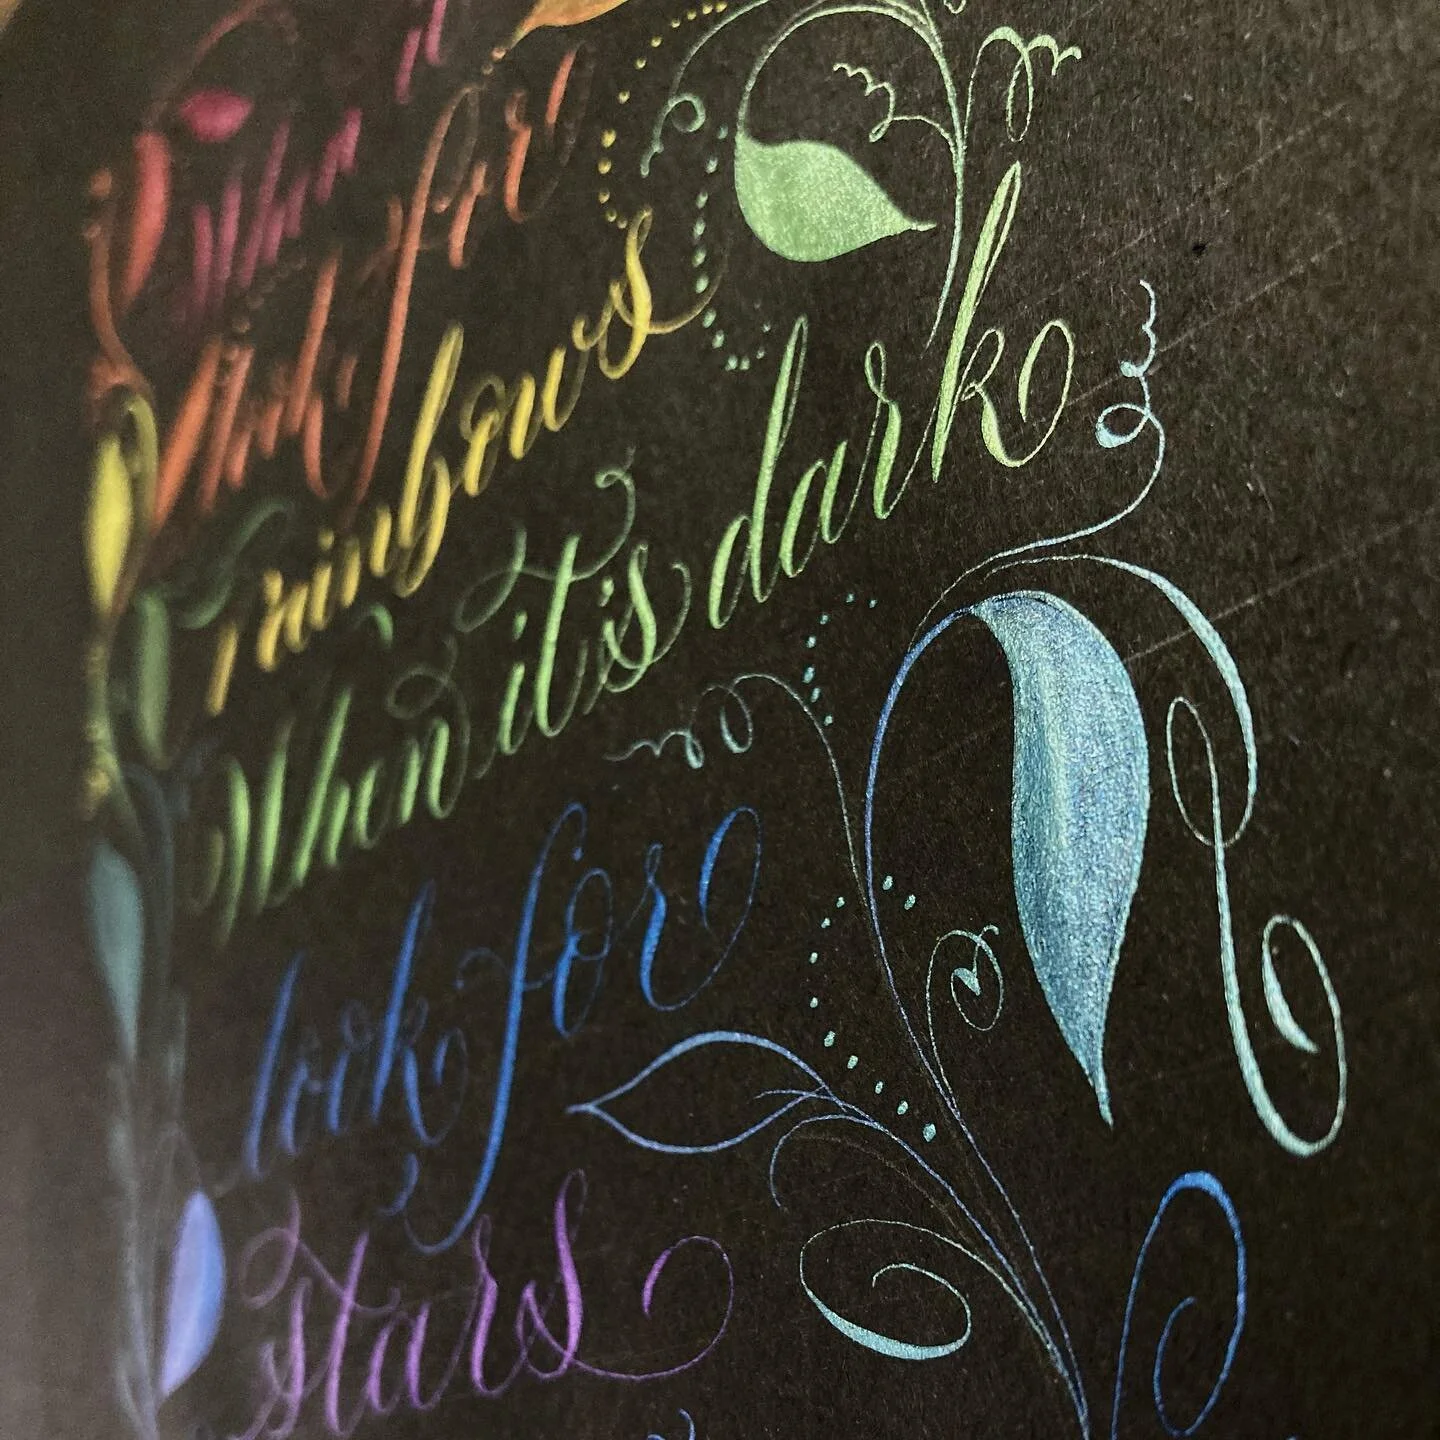 When it
look for
rainbows
When it's dark
look for
stars